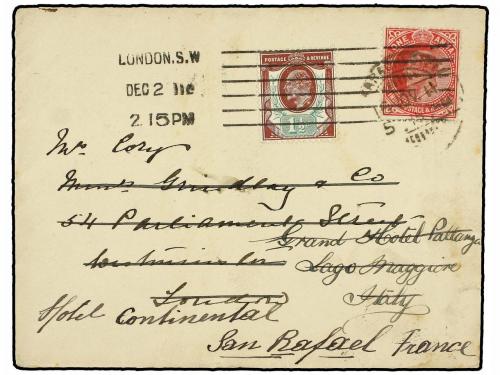 LONDON.S.W
DEC 2 11
2.15PM
POSTAGE & REVENUE
1½
ONE ANNA
POSTAGE &
Mrs Cory
Messrs Grindlay & Co
54 Parliament Street
Westminster
London
Grand Hotel Pallanza
Lago Maggiore
Italy
Hotel Continental
San Rafael France